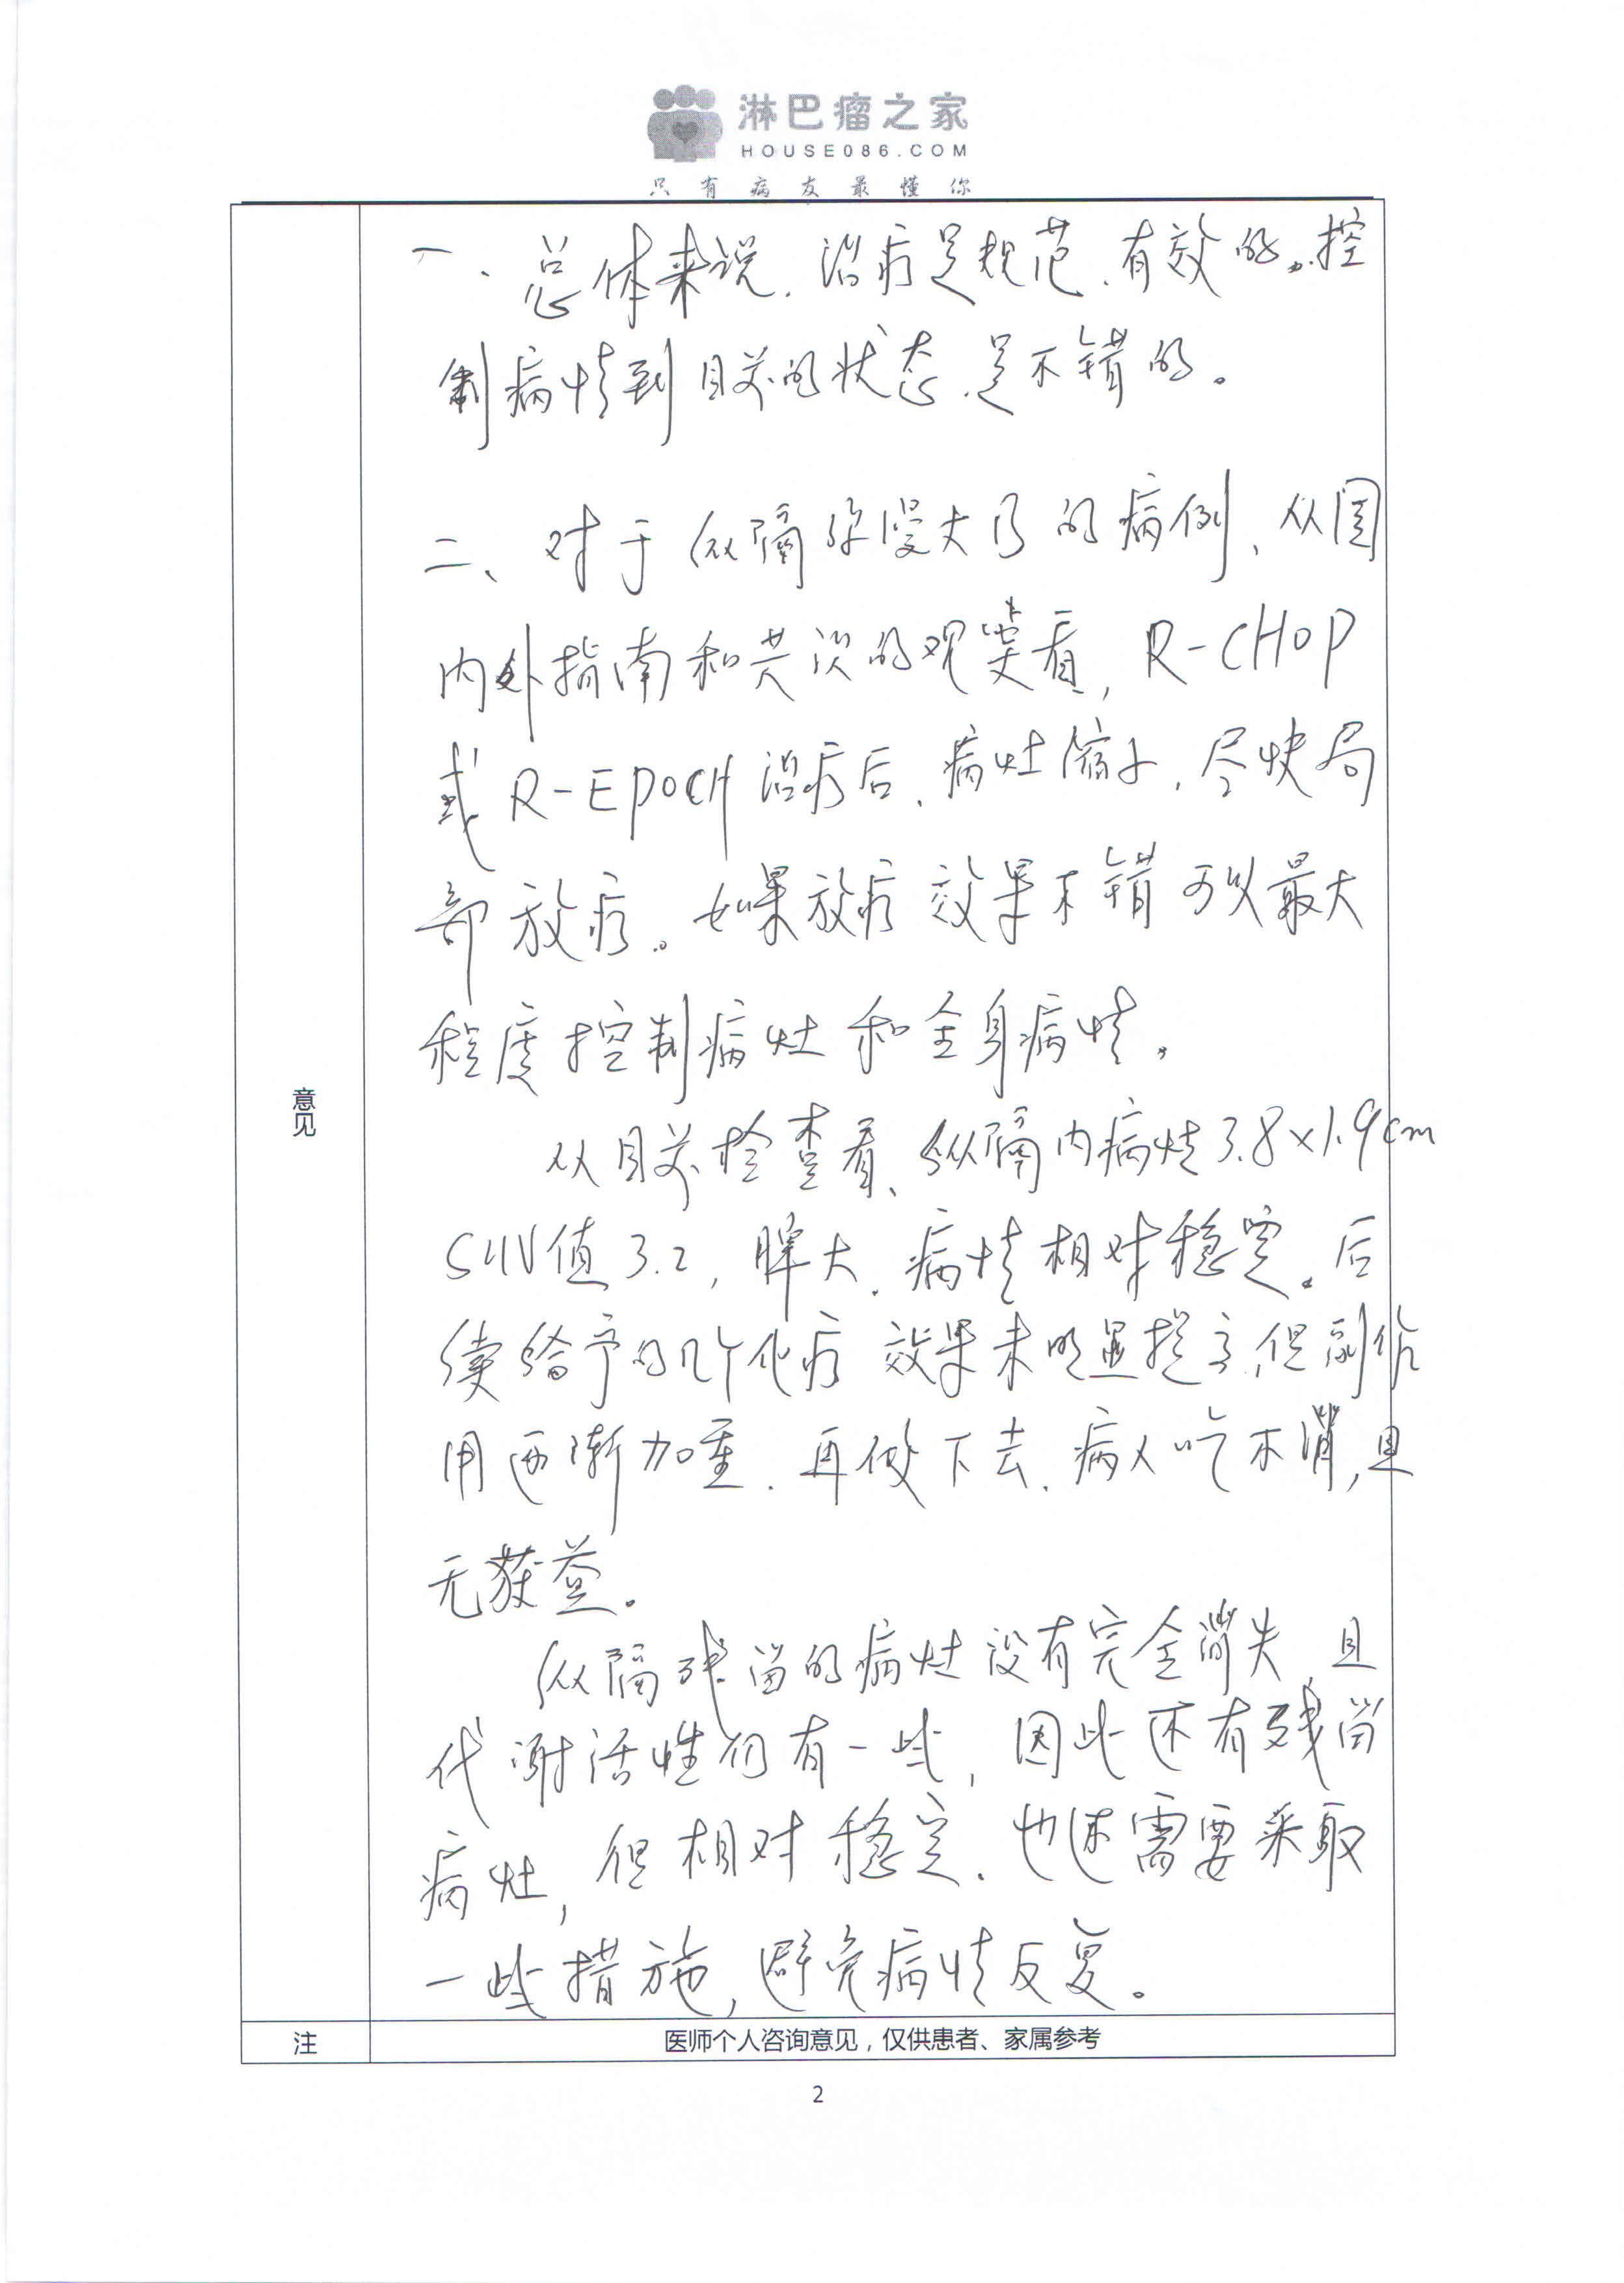 淋巴瘤之家
HOUSE086.COM
只有病友最懂你
一、总体来说,治疗是规范、有效的。控
制病情到目前的状态,是不错的。
二、对于纵隔弥漫大B的病例,从国
内外指南和共识的观点看,R-CHOP
或R-EPOCH治疗后,病灶缩小,尽快局
部放疗。如果放疗效果不错可以最大
程度控制病灶和全身病情。
从目前检查看、纵隔内病灶3.8×1.9cm
SUV值3.2,脾大,病情相对稳定。后
续给予的几个化疗效果未明显提高,但副作
用逐渐加重,再做下去,病人吃不消,且
无获益。
纵隔残留的病灶没有完全消失,且
代谢活性仍有一些,因此还有残留
病灶,但相对稳定,也还需要采取
一些措施,避免病情反复。
意见
注
医师个人咨询意见,仅供患者、家属参考
2